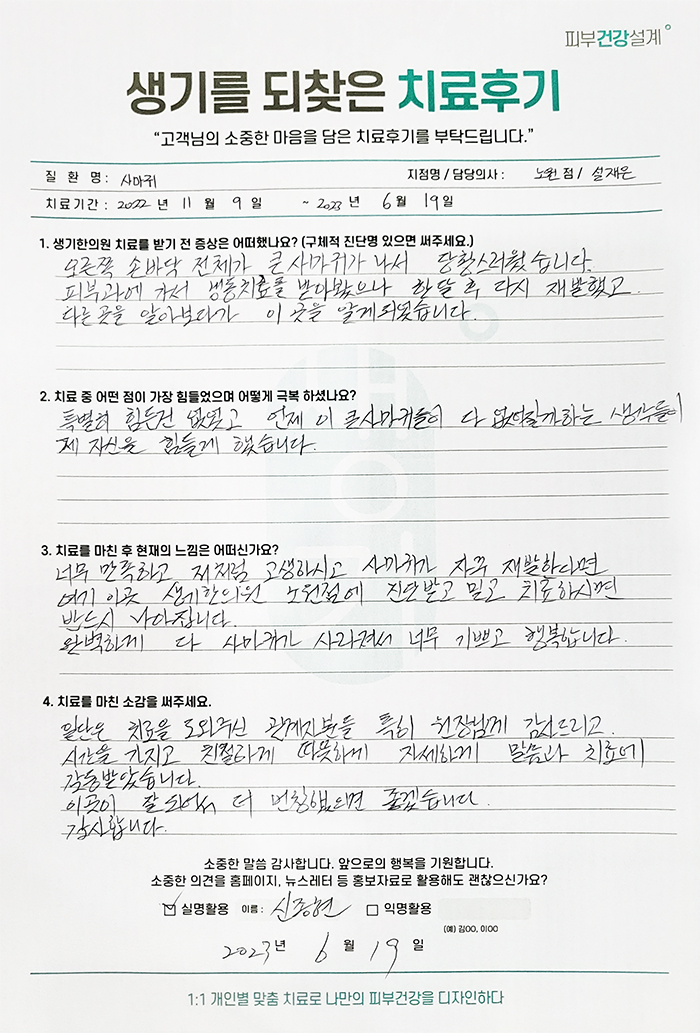 피부건강설계
생기를 되찾은 치료후기
“고객님의 소중한 마음을 담은 치료후기를 부탁드립니다.”
질 환 명: 사마귀 지점명 / 담당의사 : 노원점 / 설재은
치료기간 : 2022 년 11 월 9 일 ~ 2023 년 6 월 19 일
1. 생기한의원 치료를 받기 전 증상은 어떠했나요? (구체적 진단명 있으면 써주세요.)
오른쪽 손바닥 전체가 큰 사마귀가 나서 당황스러웠습니다.
피부과에 가서 냉동치료를 받아봤으나 한달 후 다시 재발했고
다른 곳을 알아보다가 이 곳을 알게되었습니다.
2. 치료 중 어떤 점이 가장 힘들었으며 어떻게 극복 하셨나요?
특별히 힘든건 없었고 언제 이 큰사마귀들이 다 없어질까하는 생각들이
제 자신을 힘들게 했습니다.
3. 치료를 마친 후 현재의 느낌은 어떠신가요?
너무 만족하고 저처럼 고생하시고 사마귀가 자꾸 재발하다면
여기 이곳 생기한의원 노원점에 진단받고 믿고 치료하시면
반드시 나아집니다.
완벽하게 다 사마귀가 사라져서 너무 기쁘고 행복합니다.
4. 치료를 마친 소감을 써주세요.
일단은 치료을 도와주신 관계자분들 특히 원장님께 감사드리고.
시간을 가지고 친절하게 따뜻하게 자세하게 말씀과 치료에
감동받았습니다.
이곳이 잘 되어서 더 번창했으면 좋겠습니다.
감사합니다.
소중한 말씀 감사합니다. 앞으로의 행복을 기원합니다.
소중한 의견을 홈페이지, 뉴스레터 등 홍보자료로 활용해도 괜찮으신가요?
실명활용 이름 : 신종현 익명활용
(예) 김OO, 이OO
2023 년 6 월 19 일
1:1 개인별 맞춤 치료로 나만의 피부건강을 디자인하다